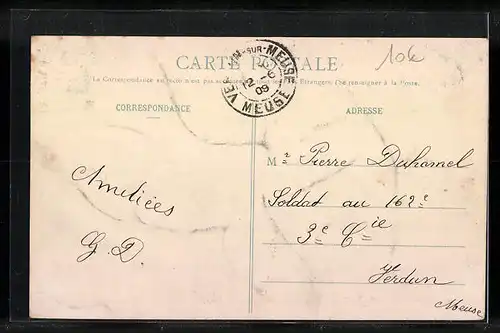 CARTE POSTALE
106
La Correspondance au recto n'est pas acceptée par tous les pays Étrangers (Se renseigner à la Poste).
VERDUN-SUR-MEUSE
12-6
09
MEUSE
CORRESPONDANCE
ADRESSE
Amitiées
G. D.
Mr Pierre Duhamel
Soldat au 162e
3e Cie
Verdun
Meuse